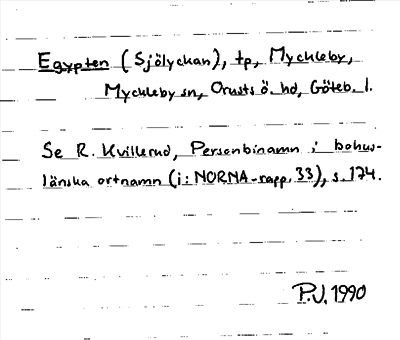 Egypten (Sjölyckan), tp, Myckleby,
Myckleby sn, Orusts ö. hd, Göteb. l.
Se R. Kvillerud, Personbinamn i bohus-
länska ortnamn (i: NORNA-rapp. 33), s. 174.
P.J. 1990